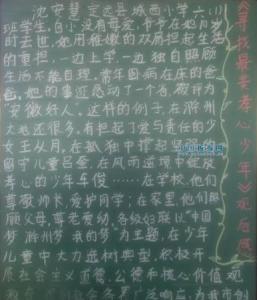 沈安慧 定远县城西小学六(八)
班学生,自小没有母爱,爷爷在她几岁
时去世,她用稚嫩的双肩担起生活
的重担,一边上学,一边独自照顾
生活不能自理,常年因病在床的爸
爸,她的事迹感动了一个省,被评为
"安徽好人"。这样的例子,在滁州
大地还很多,有担起了爱与责任的少
女王从月,在孤独中撑起
留守儿童吕金,在风雨逆境中绽放
孝心的少年车俊……在学校,他们
尊敬师长,爱护同学;在家里,他们照
顾父母,尊老爱幼,各级妇联以"中国
梦 滁州梦 我的梦"为主题,在少年
儿童中大力选树典型,积极开
展社会主义道德、公德和核心价值观
《寻找最美孝心少年》观后感